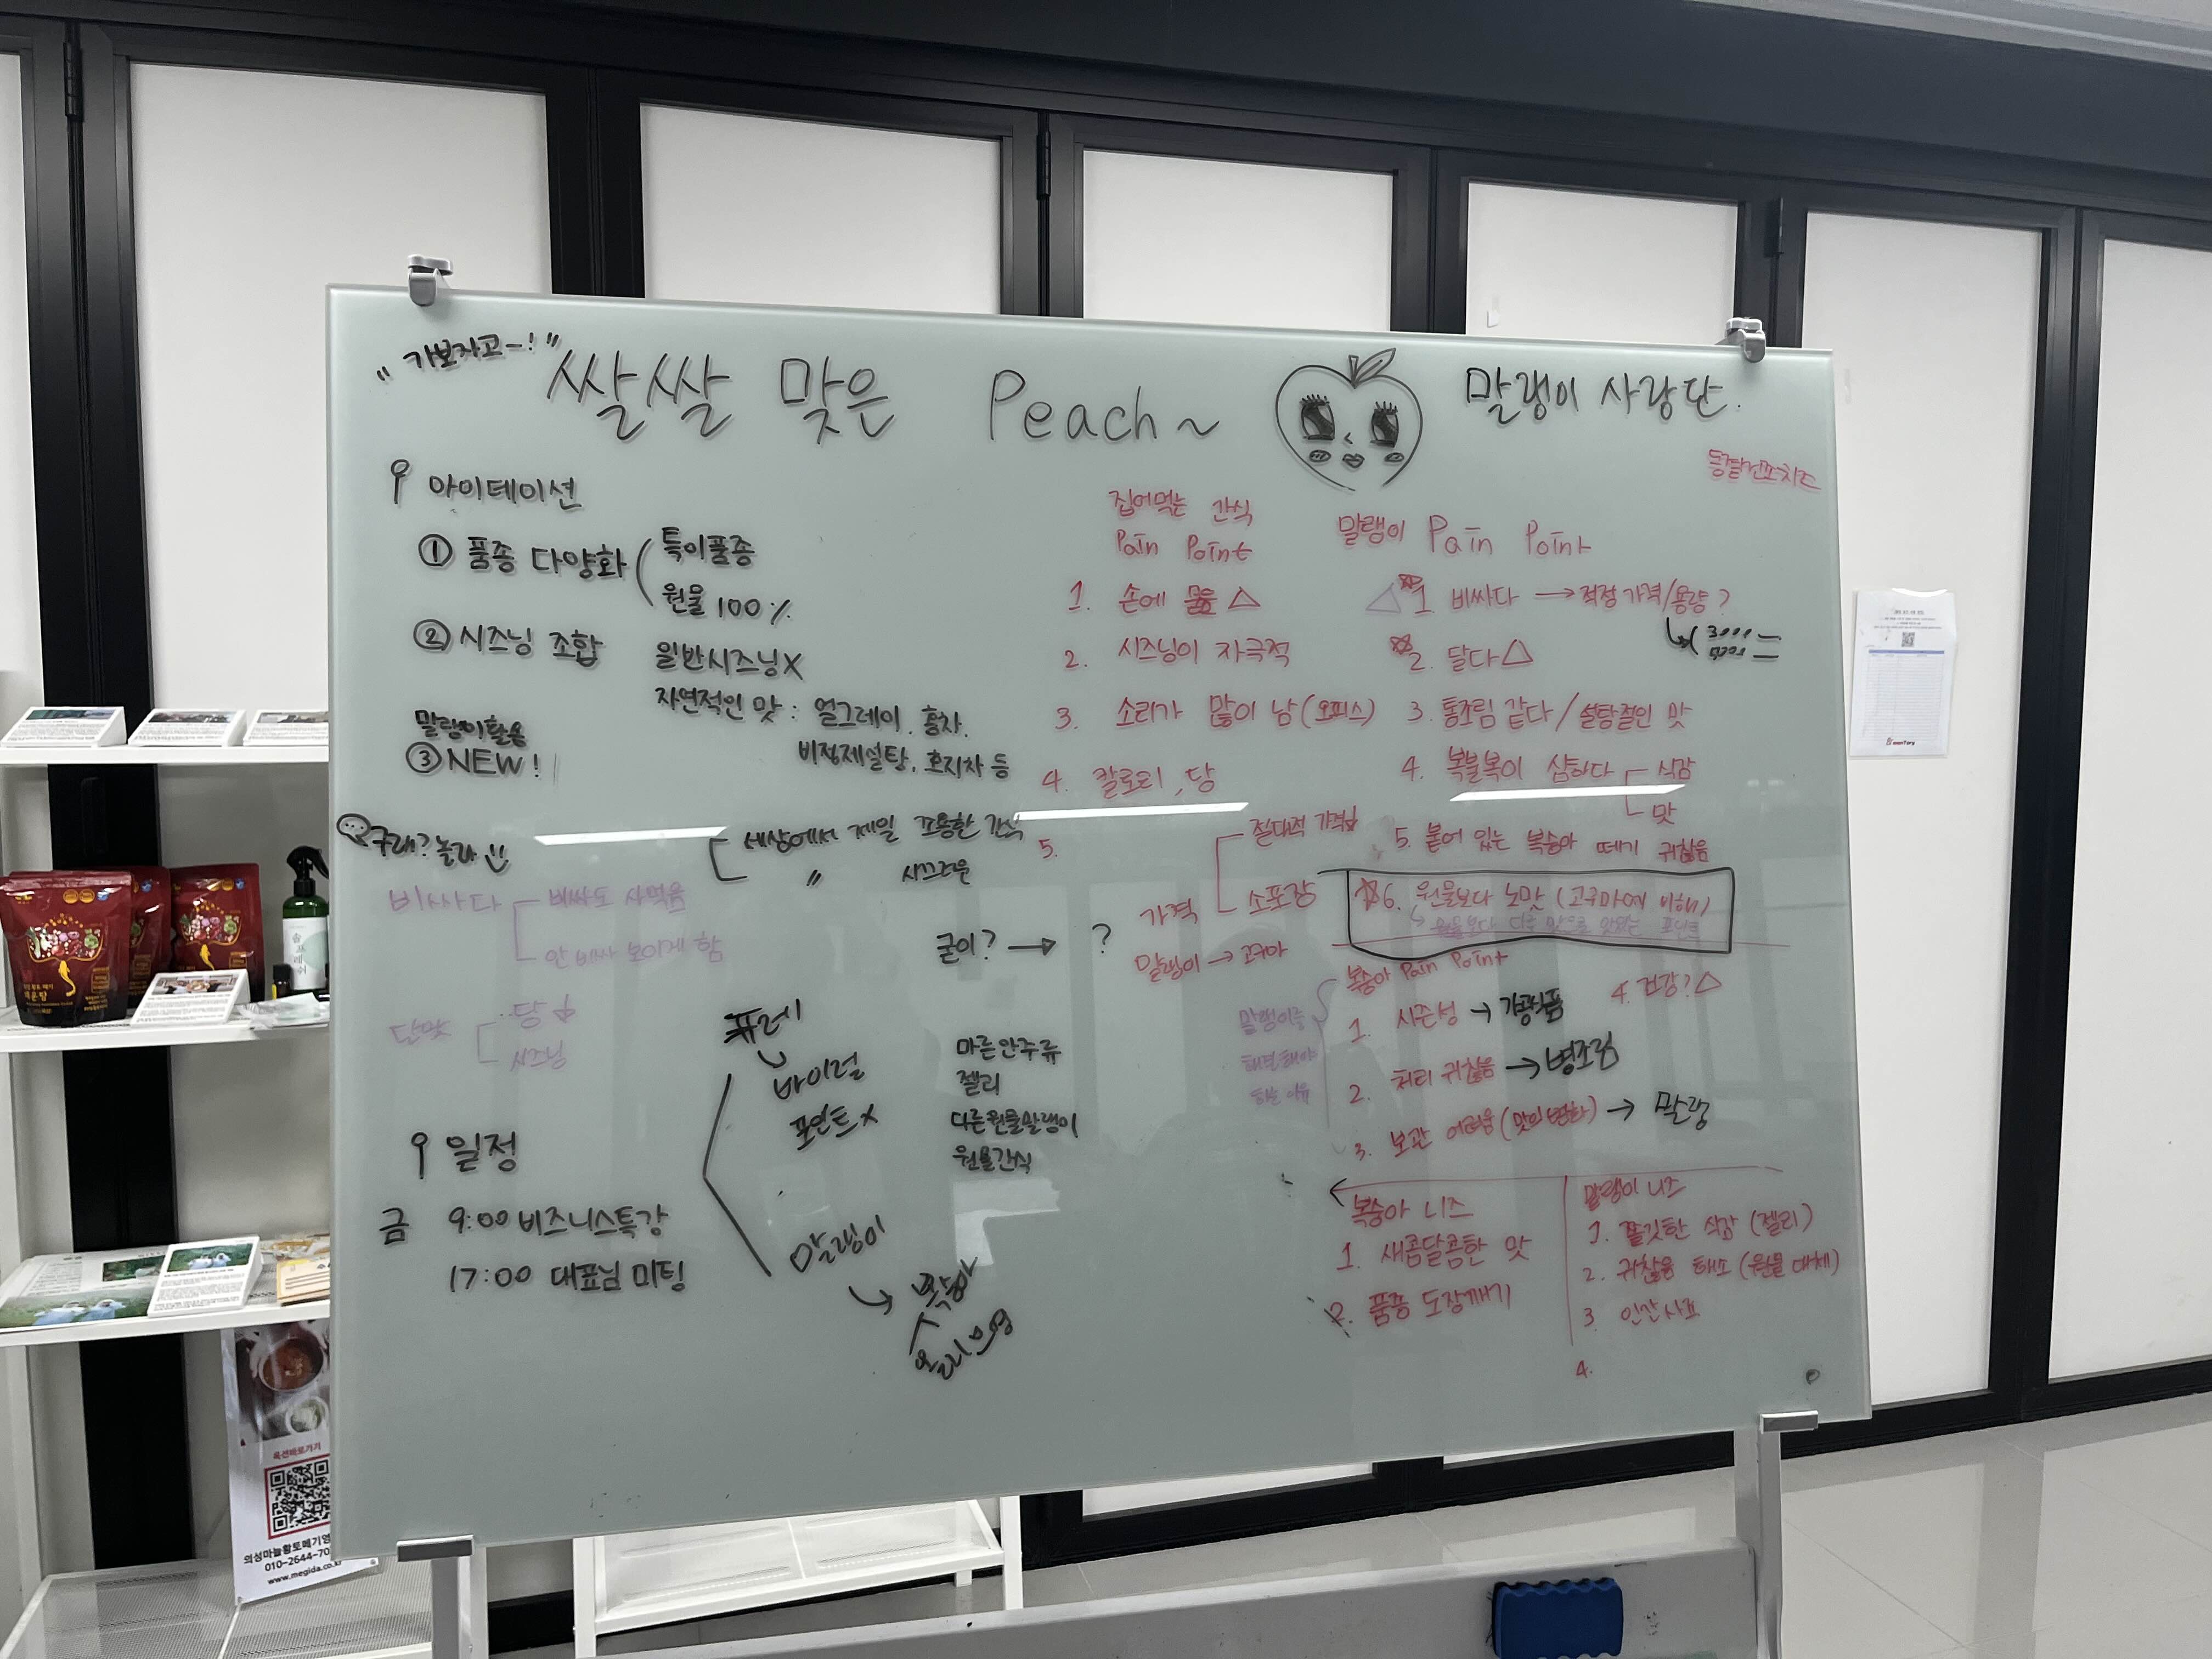 "가보자고~!"
쌀쌀 맞은 Peach~
말랭이 사랑단.
아이데이션
① 품종 다양화
특이품종
원물 100%
② 시즈닝 조합
일반시즈닝X
자연적인 맛 : 얼그레이, 홍차,
비정제설탕, 호지차 등
말랭이활용
③ NEW!
구래? 놀라
세상에서 제일 조용한 간식
〃 시끄러운
비싸다
비싸도 사먹음
안 비싸 보이게 함
단맛
당↓
시즈닝
굳이? → ?
퓨레
바이럴
포인트X
말랭이
복숭아
올리브영
마른안주류
젤리
다른원물말랭이
원물간식
일정
금 9:00 비즈니스특강
17:00 대표님 미팅
집어먹는 간식
Pain Point
1. 손에 묻음 △
2. 시즈닝이 자극적
3. 소리가 많이 남(오피스)
4. 칼로리, 당
5.
가격
절대적 가격↓
소포장
말랭이 → 고구마
말랭이 Pain Point
△☆1 비싸다 → 적정가격/용량?
☆2. 달다△
3. 통조림 같다/설탕절인 맛
4. 복불복이 심하다
식감
맛
5. 붙어 있는 복숭아 떼기 귀찮음
☆6. 원물보다 노맛(고구마에 비해)
원물보다 다른 맛으로 맛있는 포인트
복숭아 Pain Point
1. 시즌성 → 가공식품
2. 처리 귀찮음 → 병조림
3. 보관 어려움(맛의변화) → 말랭
4. 건강?△
말랭이를
해결해야
하는 이유
복숭아 니즈
1. 새콤달콤한 맛
2. 품종 도장깨기
말랭이 니즈
1. 쫄깃한 식감(젤리)
2. 귀찮음 해소(원물 대체)
3 인간사료
4.
솔프레쉬
매운탕
옥션바로가기
의성마늘황토메기영
010-2644-70
www.megida.co.kr